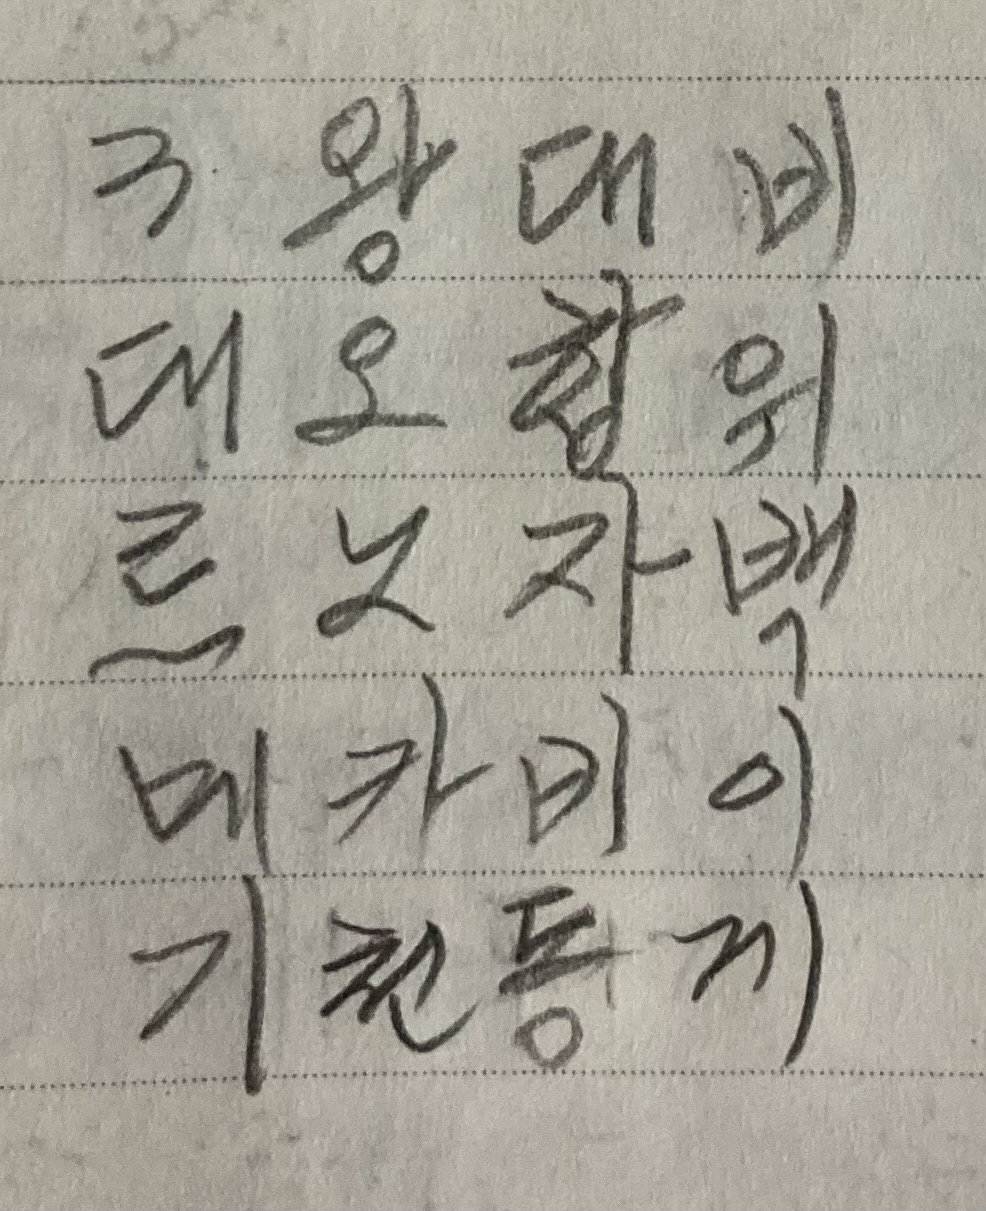 구 왕 대 비
대 오 합 위
르 자 백
메 카 비 이
기 천 동